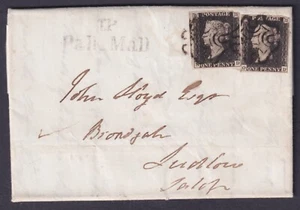 TP
Pall Mall
POSTAGE
ONE PENNY
POSTAGE
ONE PENNY
John Lloyd Esqr
Ludlow
Salop